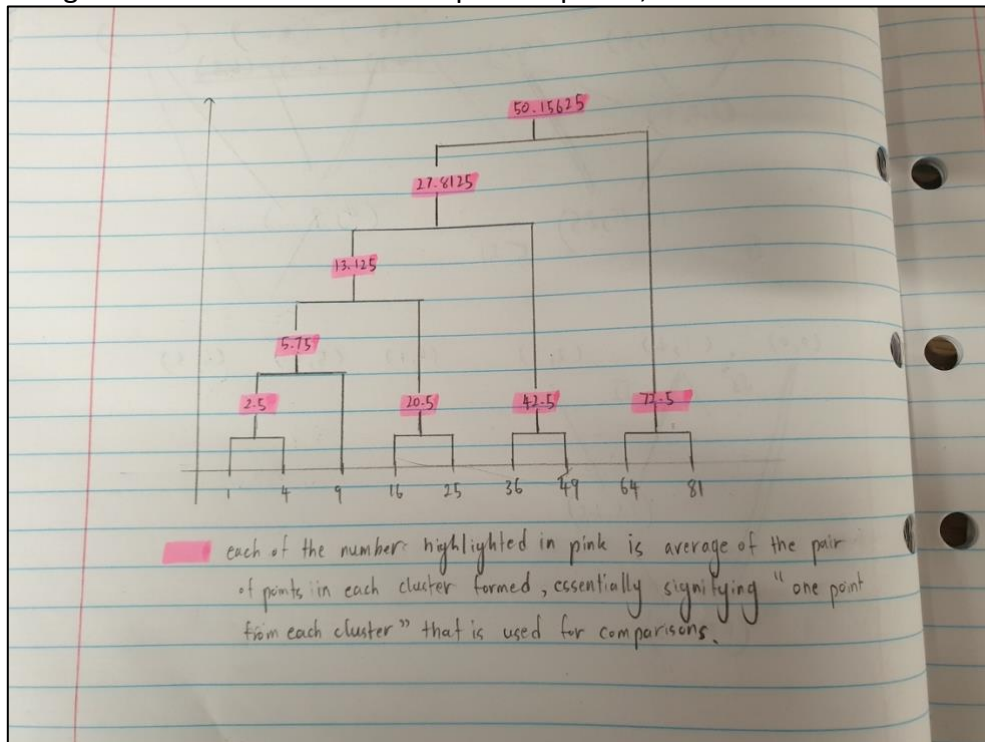 50.15625
27.8125
13.125
5.75
2.5 20.5 42.5 72.5
1 4 9 16 25 36 49 64 81
each of the number highlighted in pink is average of the pair
of points in each cluster formed, essentially signifying "one point
from each cluster" that is used for comparisons.